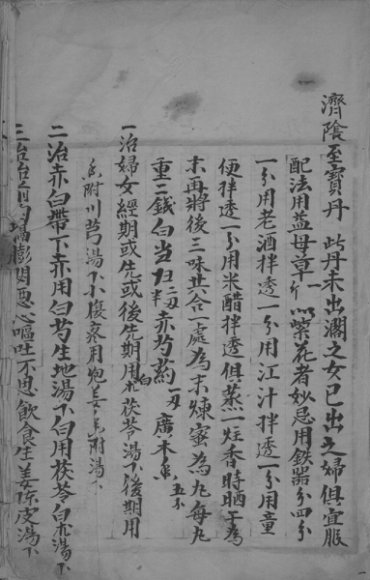 濟陰至寶丹 此丹未出閣之女已出之婦俱宜服
配法用益母草一斤以紫花者妙忌用鉄器分四分
一分用老酒拌透一分用江汁拌透一分用童
便拌透一分用米醋拌透俱蒸一炷香時晒干為
末再將後三味共合一處為末煉蜜為丸每丸
重二錢 白当归二刄 赤芍药一刄 廣木香五分
一治婦女經期或先或後先期用白朮茯苓湯下後期用
香附川芎湯下小腹疼用炮姜香附湯下
二治赤白帶下赤用白芍生地湯下白用茯苓白朮湯下
膨悶惡心嘔吐不思飲食生姜陈皮湯下